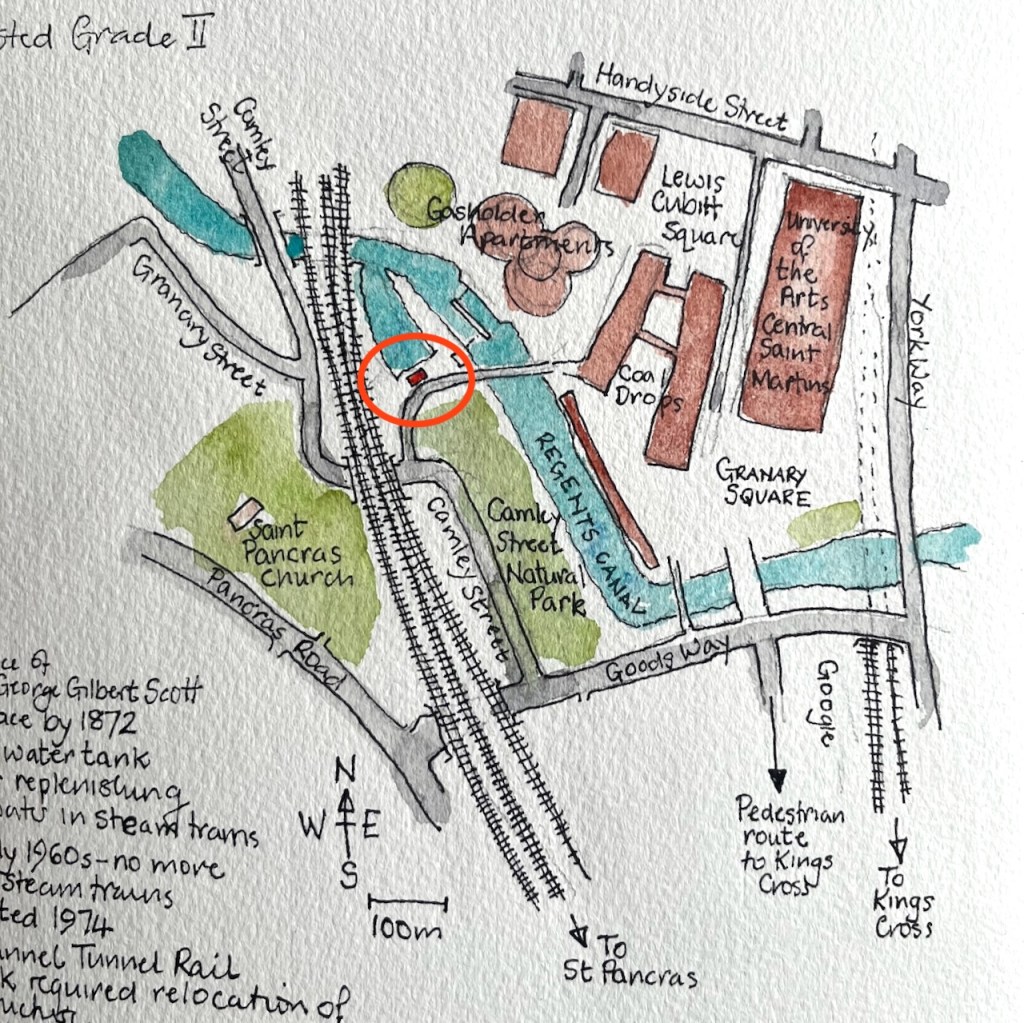 Grade II
Handyside Street
Camley
Street
Lewis
Cubitt
Square
Gasholder
Apartments
University
of
the
Arts
Central
Saint
Martins
Granary Street
York Way
Coal
Drops
REGENTS CANAL
GRANARY
SQUARE
Camley
Street
Natural
Park
Saint
Pancras
Church
Camley Street
Pancras Road
Goods Way
Google
of
George Gilbert Scott
by 1872
water tank
replenishing
in steam trams
1960s - no more
steam trains
1974
Tunnel Rail
required relocation of
N
W E
S
100m
Pedestrian
route
to Kings
Cross
To
Kings
Cross
To
St Pancras